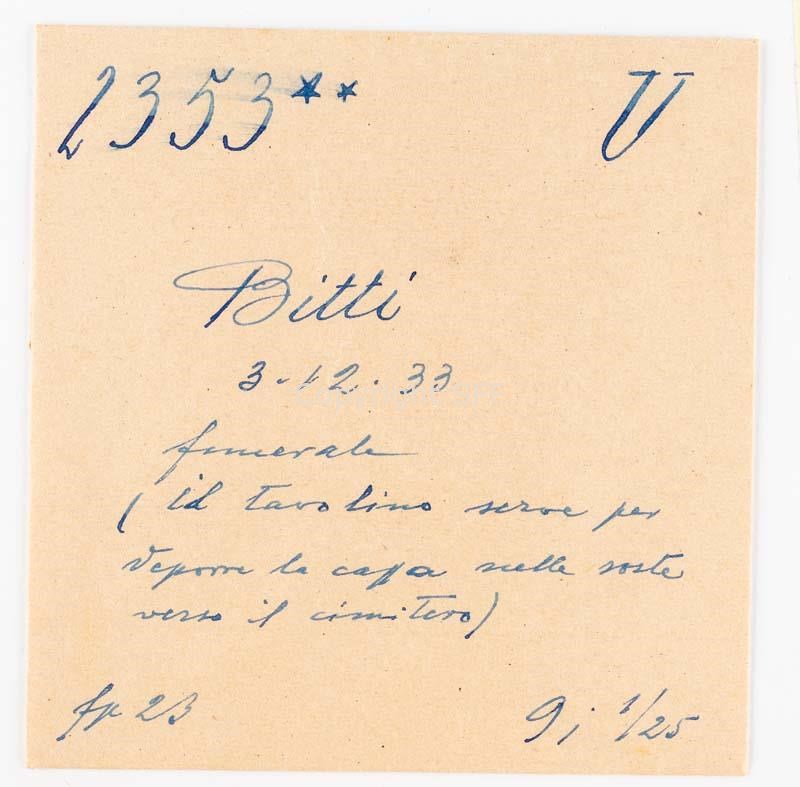 2353** U
Bitti
3.12.33
funerale
(il tavolino serve per
deporre la cassa nelle soste
verso il cimitero)
fp 23 9i 1/25